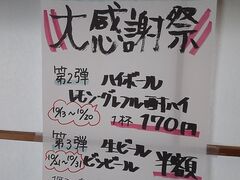 大感謝祭
第2弾 ハイボール
レモングレフル酎ハイ
10/13～10/20 1杯 170円
第3弾 生ビール
10/21～10/31 ビンビール 半額